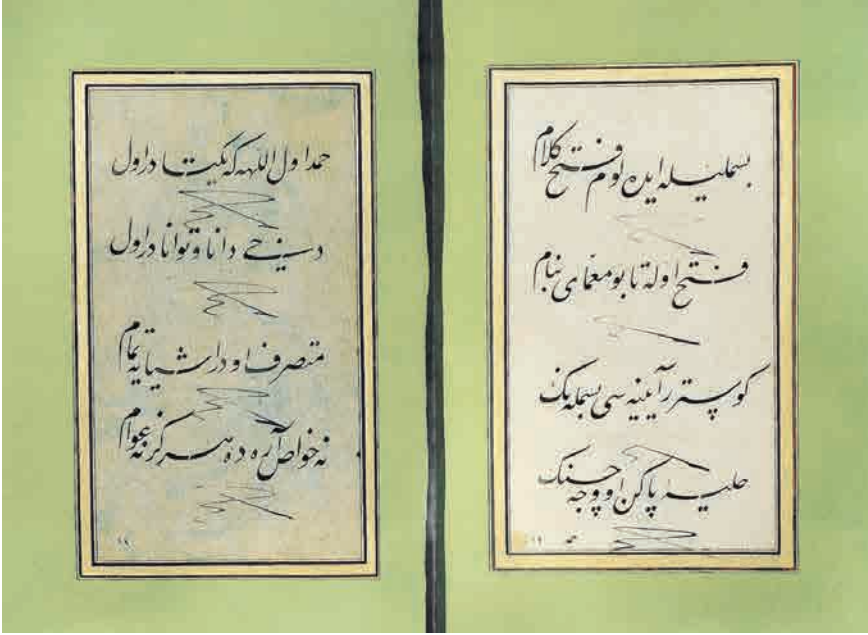 بسملیله ایده لوم فتح کلام
فتح اوله تا بو معمای بنام
کوسترر آیینه سی بسمله نک
حلیه پاکن او وجه حسنک
حمد اول اللهه که یکتا در اول
حی دانا و توانا در اول
متصرف او در اشیایه تمام
نه خواص آره ده هرکز نه عوام